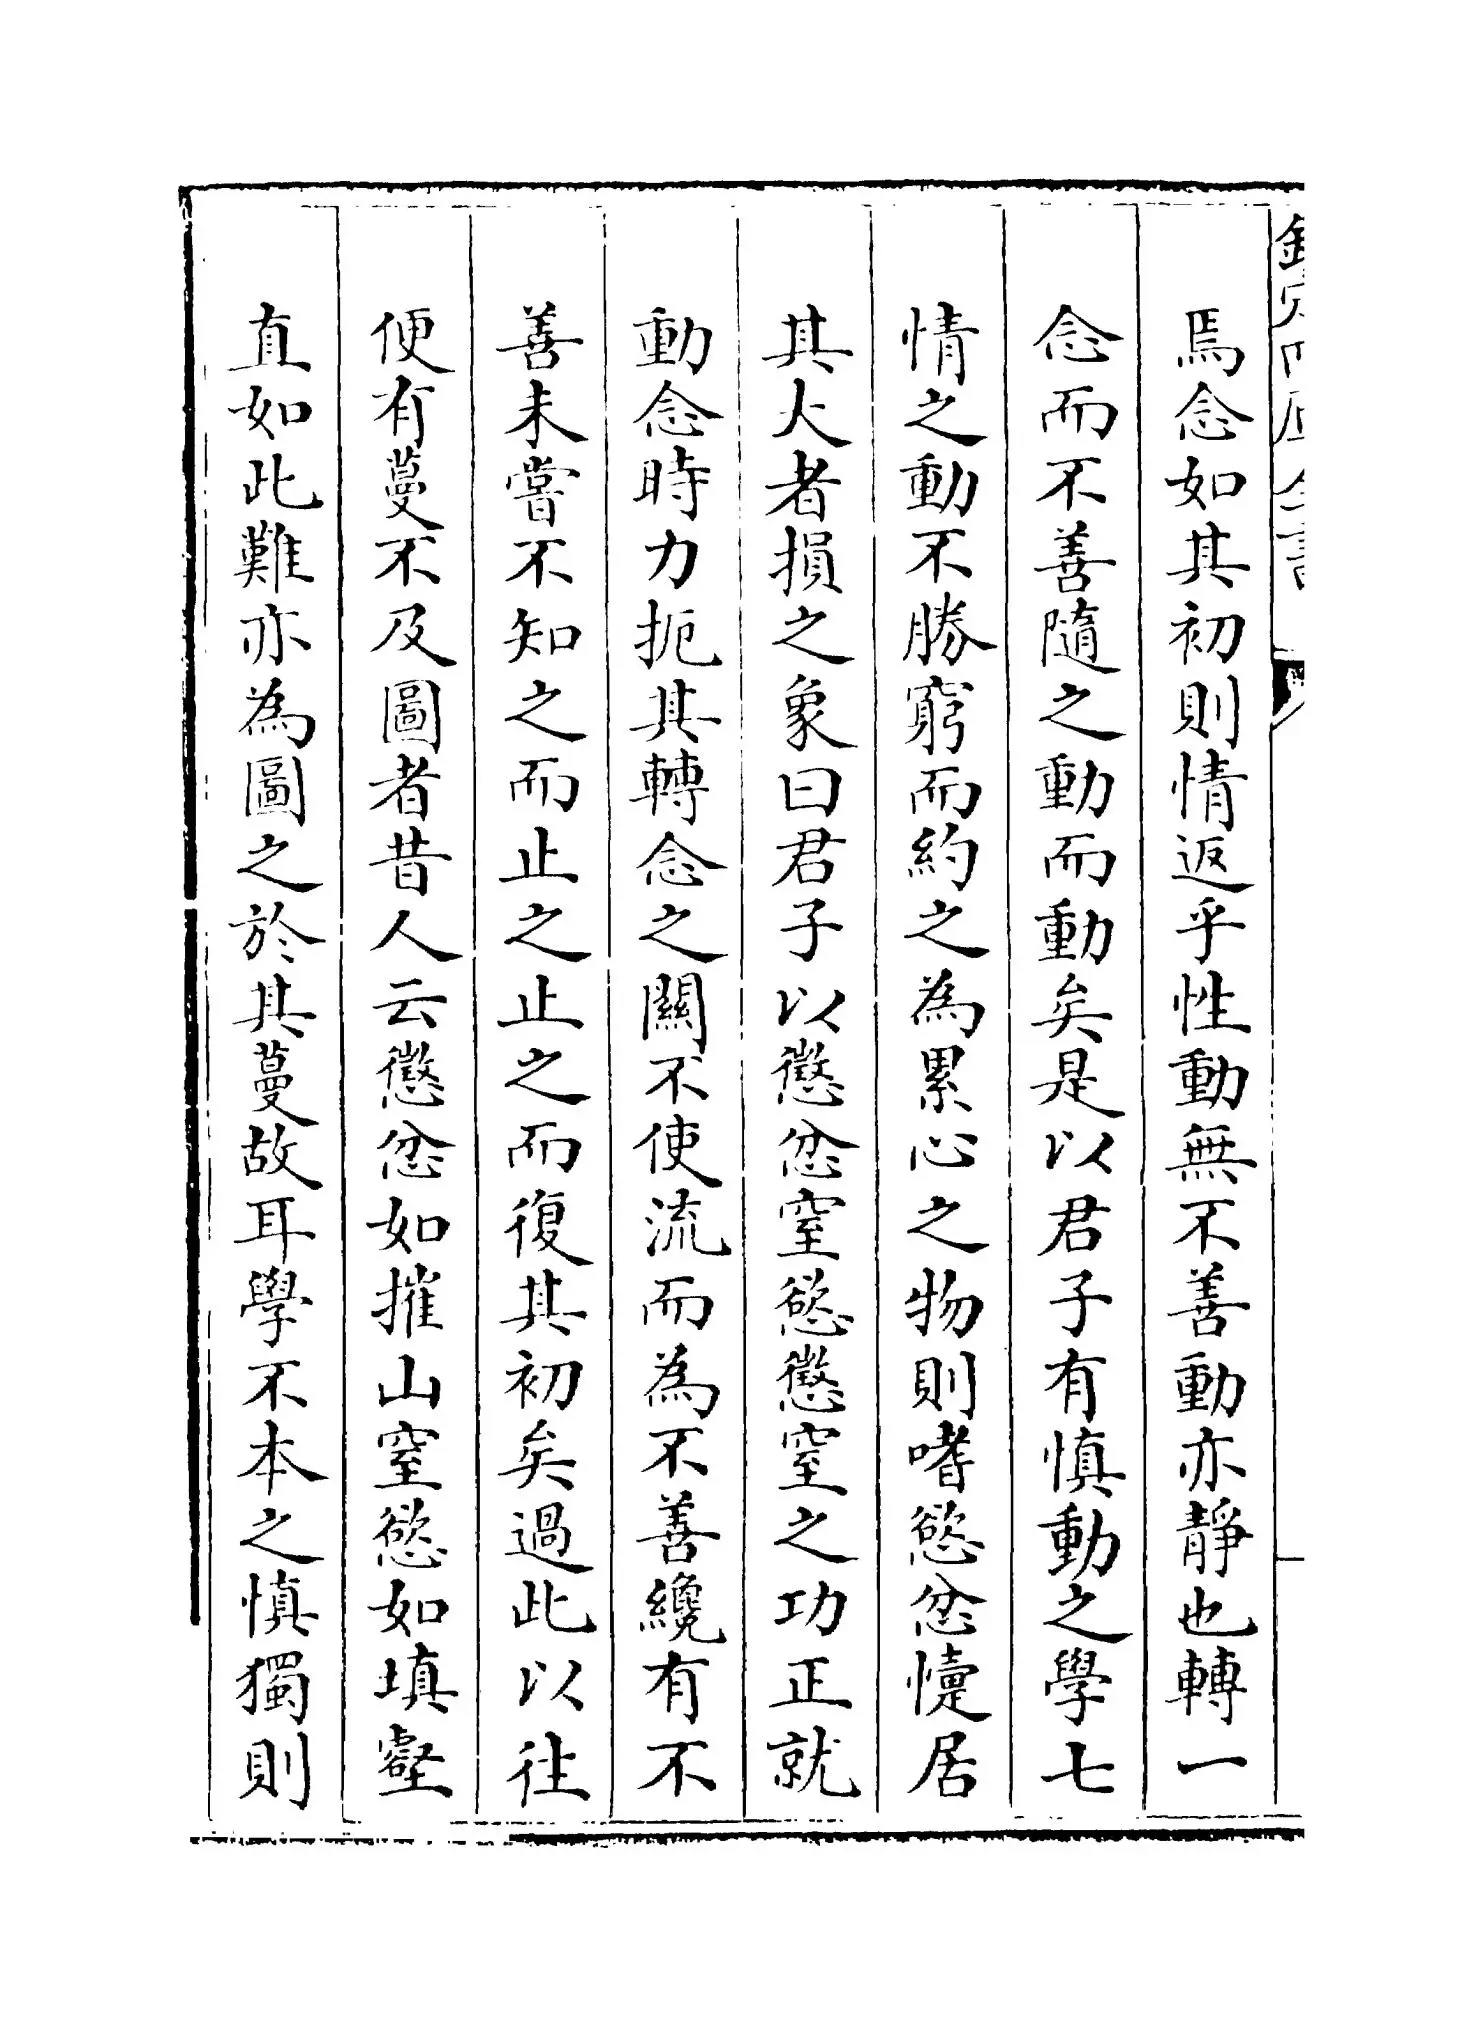 焉念如其初則情返乎性動無不善動亦靜也轉一
念而不善隨之動而動矣是以君子有慎動之學七
情之動不勝窮而約之為累心之物則嗜慾忿懥居
其大者損之象曰君子以懲忿窒慾懲窒之功正就
動念時力扼其轉念之關不使流而為不善纔有不
善未嘗不知之而止之止之而復其初矣過此以往
便有蔓不及圖者昔人云懲忿如摧山窒慾如填壑
直如此難亦為圖之於其蔓故耳學不本之慎獨則